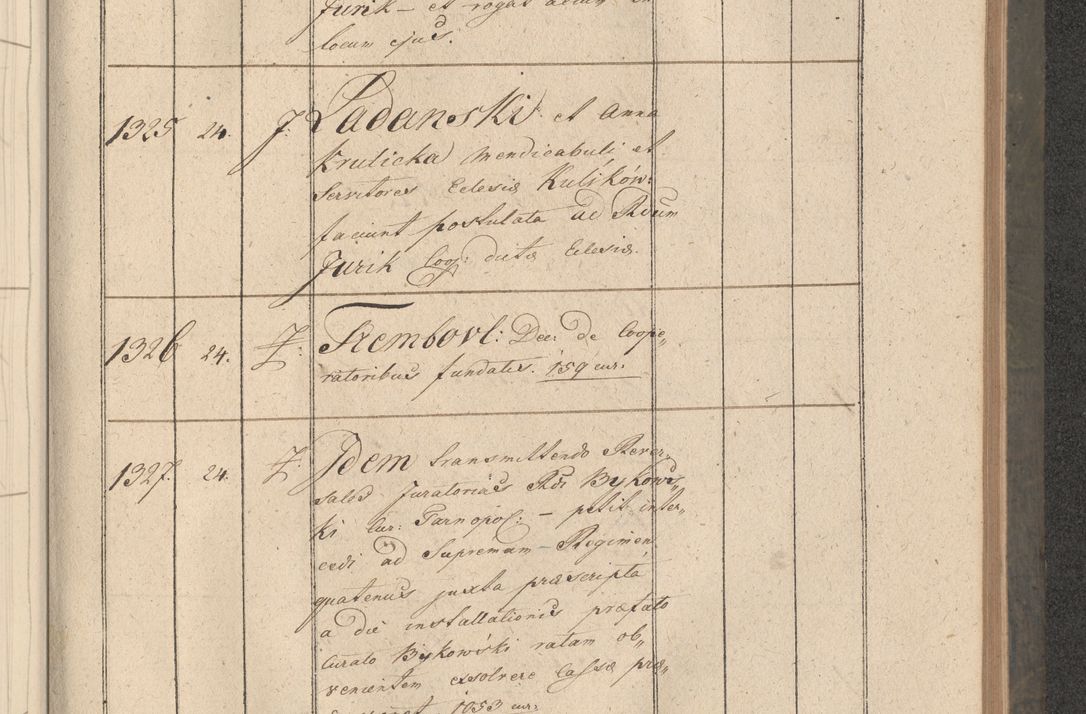 Jurik – et rogat
locum ejus.
1325 24. J: Ladanski et Anna
Krulicka Mendicabuli et
Servitores Eclesiæ Kulików:
faciunt postulata ad Rdum
Jurik Coop: dictæ Eclesiæ.
1326 24. J: Trembovl: Dec: de Coope„
ratoribus fundatis. 159 cur:
1327. 24. J: Idem transmittendo Rever„
sales Juratorias Rdi Bykows„
ki Cur: Tarnopol: – petit inter„
cedi ad Supremam Regimen
quatenus juxta præscripta
a die installationis præfato
Curato Bykowski ratam ob„
venientem exolvere Cassæ præ„
1053 cur: